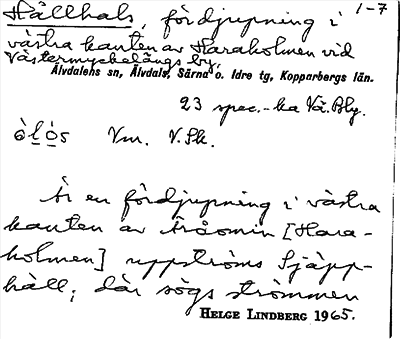 Hållhals, fördjupning i 1-7
västra kanten av Haraholmen vid
Västermyckelängs by.
Älvdalens sn, Älvdals, Särna o. Idre tg, Kopparbergs län.
23 spec.-ka Vä. Bly.
Vm. V.Sk.
Är en fördjupning i västra
kanten av åråomin [Hara-
holmen] uppströms Sjäpp-
häll; där sögs strömmen
HELGE LINDBERG 1965.